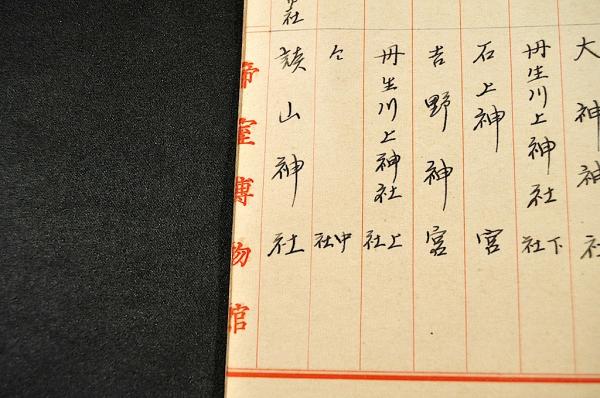 大神神社
丹生川上神社下社
石上神宮
吉野神宮
丹生川上神社上社
仝 中社
談山神社
帝室博物館